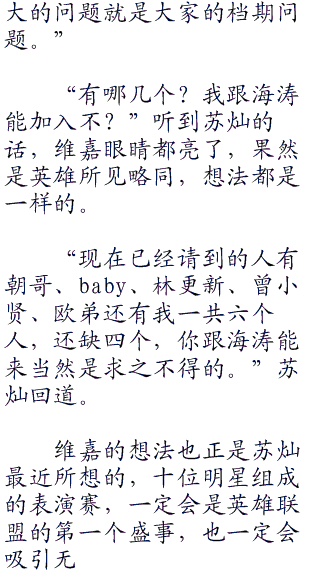 大的问题就是大家的档期问
题。”
“有哪几个？我跟海涛
能加入不？”听到苏灿的
话，维嘉眼睛都亮了，果然
是英雄所见略同，想法都是
一样的。
“现在已经请到的人有
朝哥、baby、林更新、曾小
贤、欧弟还有我一共六个
人，还缺四个，你跟海涛能
来当然是求之不得的。”苏
灿回道。
维嘉的想法也正是苏灿
最近所想的，十位明星组成
的表演赛，一定会是英雄联
盟的第一个盛事，也一定会
吸引无